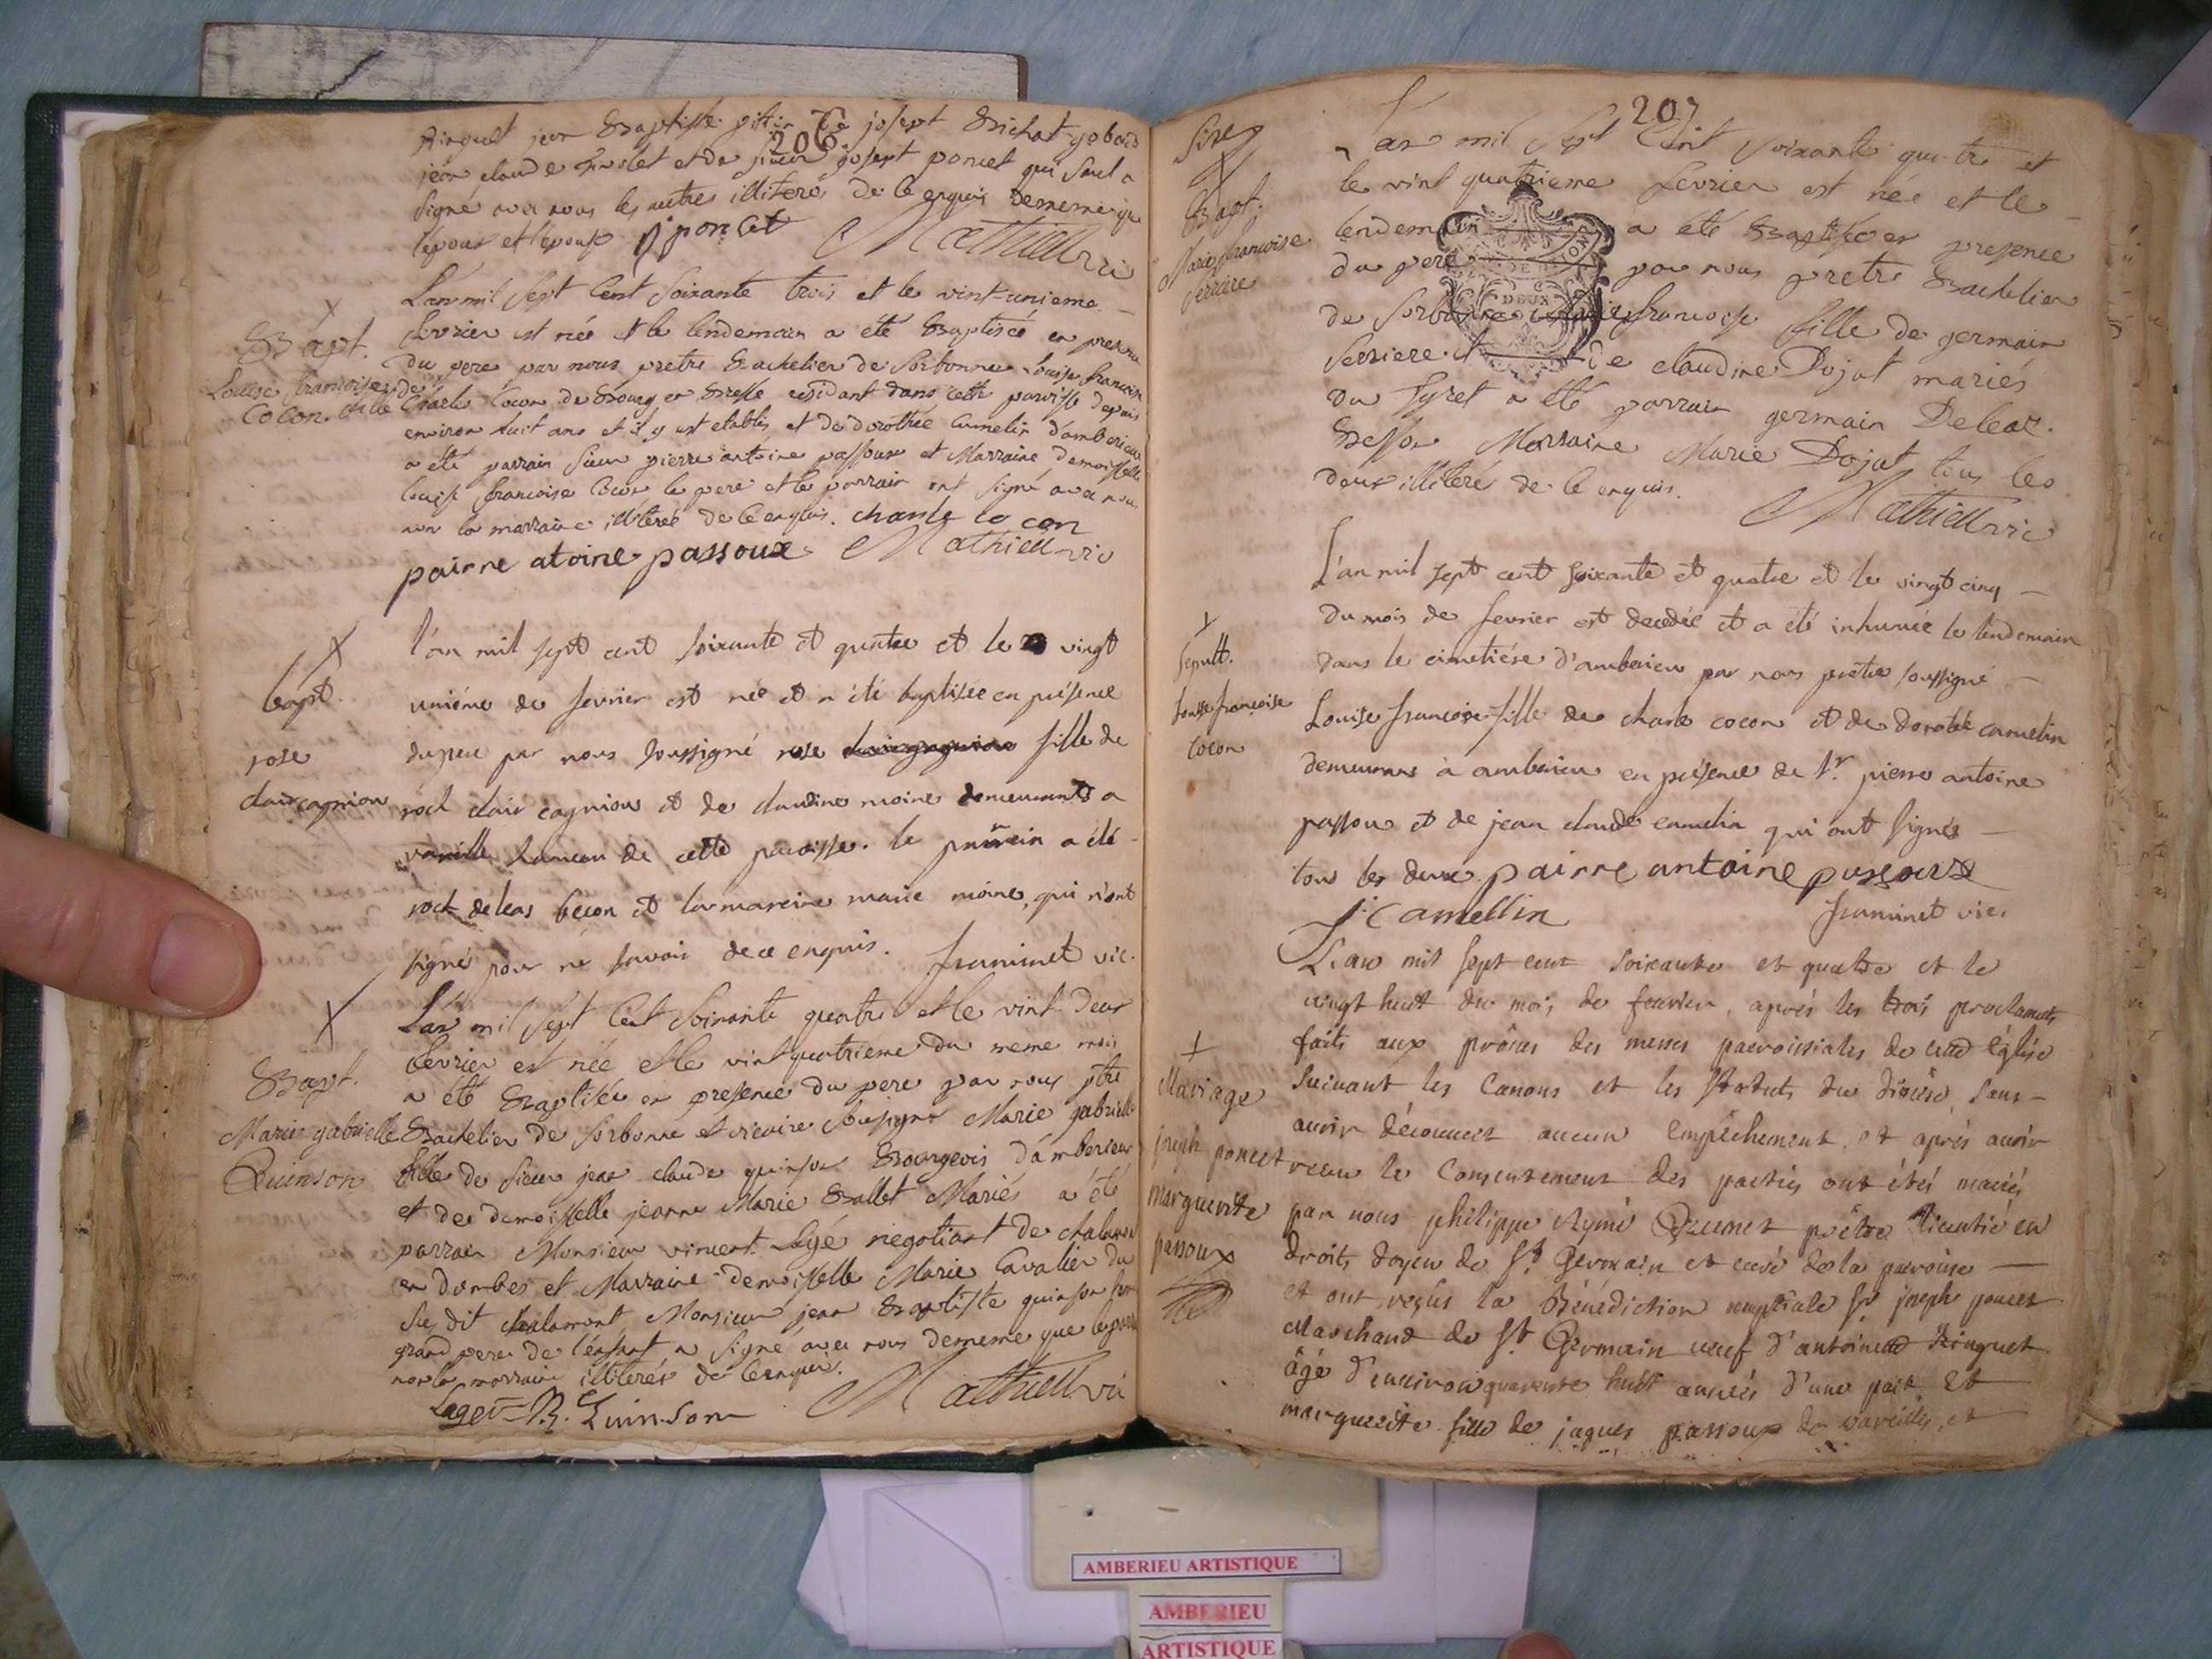 206
jean Baptiste pitin De josept Brichat gobas
jean claude et de sieur josept poncet qui seul a
signé avec nous les autres illiterés de ce enquis dememe que
l'epoux et l'epouse j poncet Mathieu vic
L'an mil sept Cent Soixante trois et le vint-unieme
fevrier est née et le lendemain a été Baptisée en presence
du pere par nous pretre Bachelier de Sorbonne Louise francoise
Bapt.
Louise francoise
Cocon fille de Charles Cocon de Bourg en Bresse residant dans cette paroisse depuis
environ huit ans et il y est etablis et de dorothée Camelin d'amberieu
a été parrain sieur pierre antoine passoux et Marraine demoiselle
louise francoise Cocon le pere et le parrain ont signé avec nous
non la marraine illiterée de ce enquis. charle co con
pairne atoine passoux Mathieu vic
l'an mil sept cent soixante et quatre et le vingt
bapt.
uniéme de fevrier est née et a été baptisée en présence
rose
du pere par nous soussigné rose fille de
clair cagniou
roch clair cagniou et de claudine moine demeurants a
vareille hameau de cette paroisse. le parrein a été
roch deleas becon et la mareine marie moine, qui n'ont
signé pour ne savoir de ce enquis. vic.
L'an mil sept Cent Soixante quatre et le vint-Deux
fevrier est née et le vint quatrieme du meme mois
Bapt.
a été Baptisée en presence du pere par nous ptre
Marie gabrielle
Bachelier de Sorbonne et vicaire soussigné Marie gabrielle
Quinson
fille de sieur jean claude quinson Bourgeois d'amberieu
et de demoiselle jeanne Marie Ballet Mariés a été
parrain Monsieur vincent Lagé negotiant de chalamont
en dombes et Marraine demoiselle Marie Cavalier du
sus dit chalamont Monsieur jean Baptiste quinson
grand pere de l'enfant a signé avec nous dememe que le pere
non la marraine illiterée de ce enquis.
Laget B. Quinson Mathieu vic
207
L'an mil sept Cent soixante quatre et
Bapt.
le vint quatrieme fevrier est née et le
Marie francoise
lendemain a été Baptisée en presence
Serriere
du pere par nous pretre Bachelier
DEUX
de Sorbonne marie francoise fille de germain
Serriere et de claudine Dojat mariés
du Tyret a été parrain germain Deleaz
Besson Marraine Marie Dojat tous les
deux illiterés de ce enquis.
Mathieu vic
L'an mil sept cent soixante et quatre et le vingt cinq
du mois de fevrier est decedée et a été inhumée le lendemain
Sepult.
dans le cimetiére d'amberieu par nous prêtre soussigné
Louise françoise
Cocon
Louise francoise fille de charle cocon et de dorothé camelin
demeurans à amberieu en présence de Sr. pierre antoine
passoux et de jean claude camelin qui ont signés
tous les deux. pairre antoine passoux
J. Camellin vic.
L'an mil sept cent soixante et quatre et le
vingt huit du mois de fevrier, aprés les trois proclamats
faits aux prônes des messes parroissiales de cette Eglise
Mariage
suivant les Canons et les Statuts du diocèse sans
avoir découvert aucun Empêchement et aprés avoir
joseph poncet
recu le Consentement des parties ont étés mariés
marguerite
par nous philippe Aymé Brunet prêtre licentié en
passoux
droits doyen de St. Germain et curé de la parroisse
et ont reçus la Bénédiction nuptiale Sr. joseph poncet
Marchand de St. Germain veuf d'antoinette Ringuet
âgé d'environ quarente huit années d'une part et
marguerite fille de jaques passoux de vareilles, et
AMBERIEU ARTISTIQUE
AMBERIEU
ARTISTIQUE